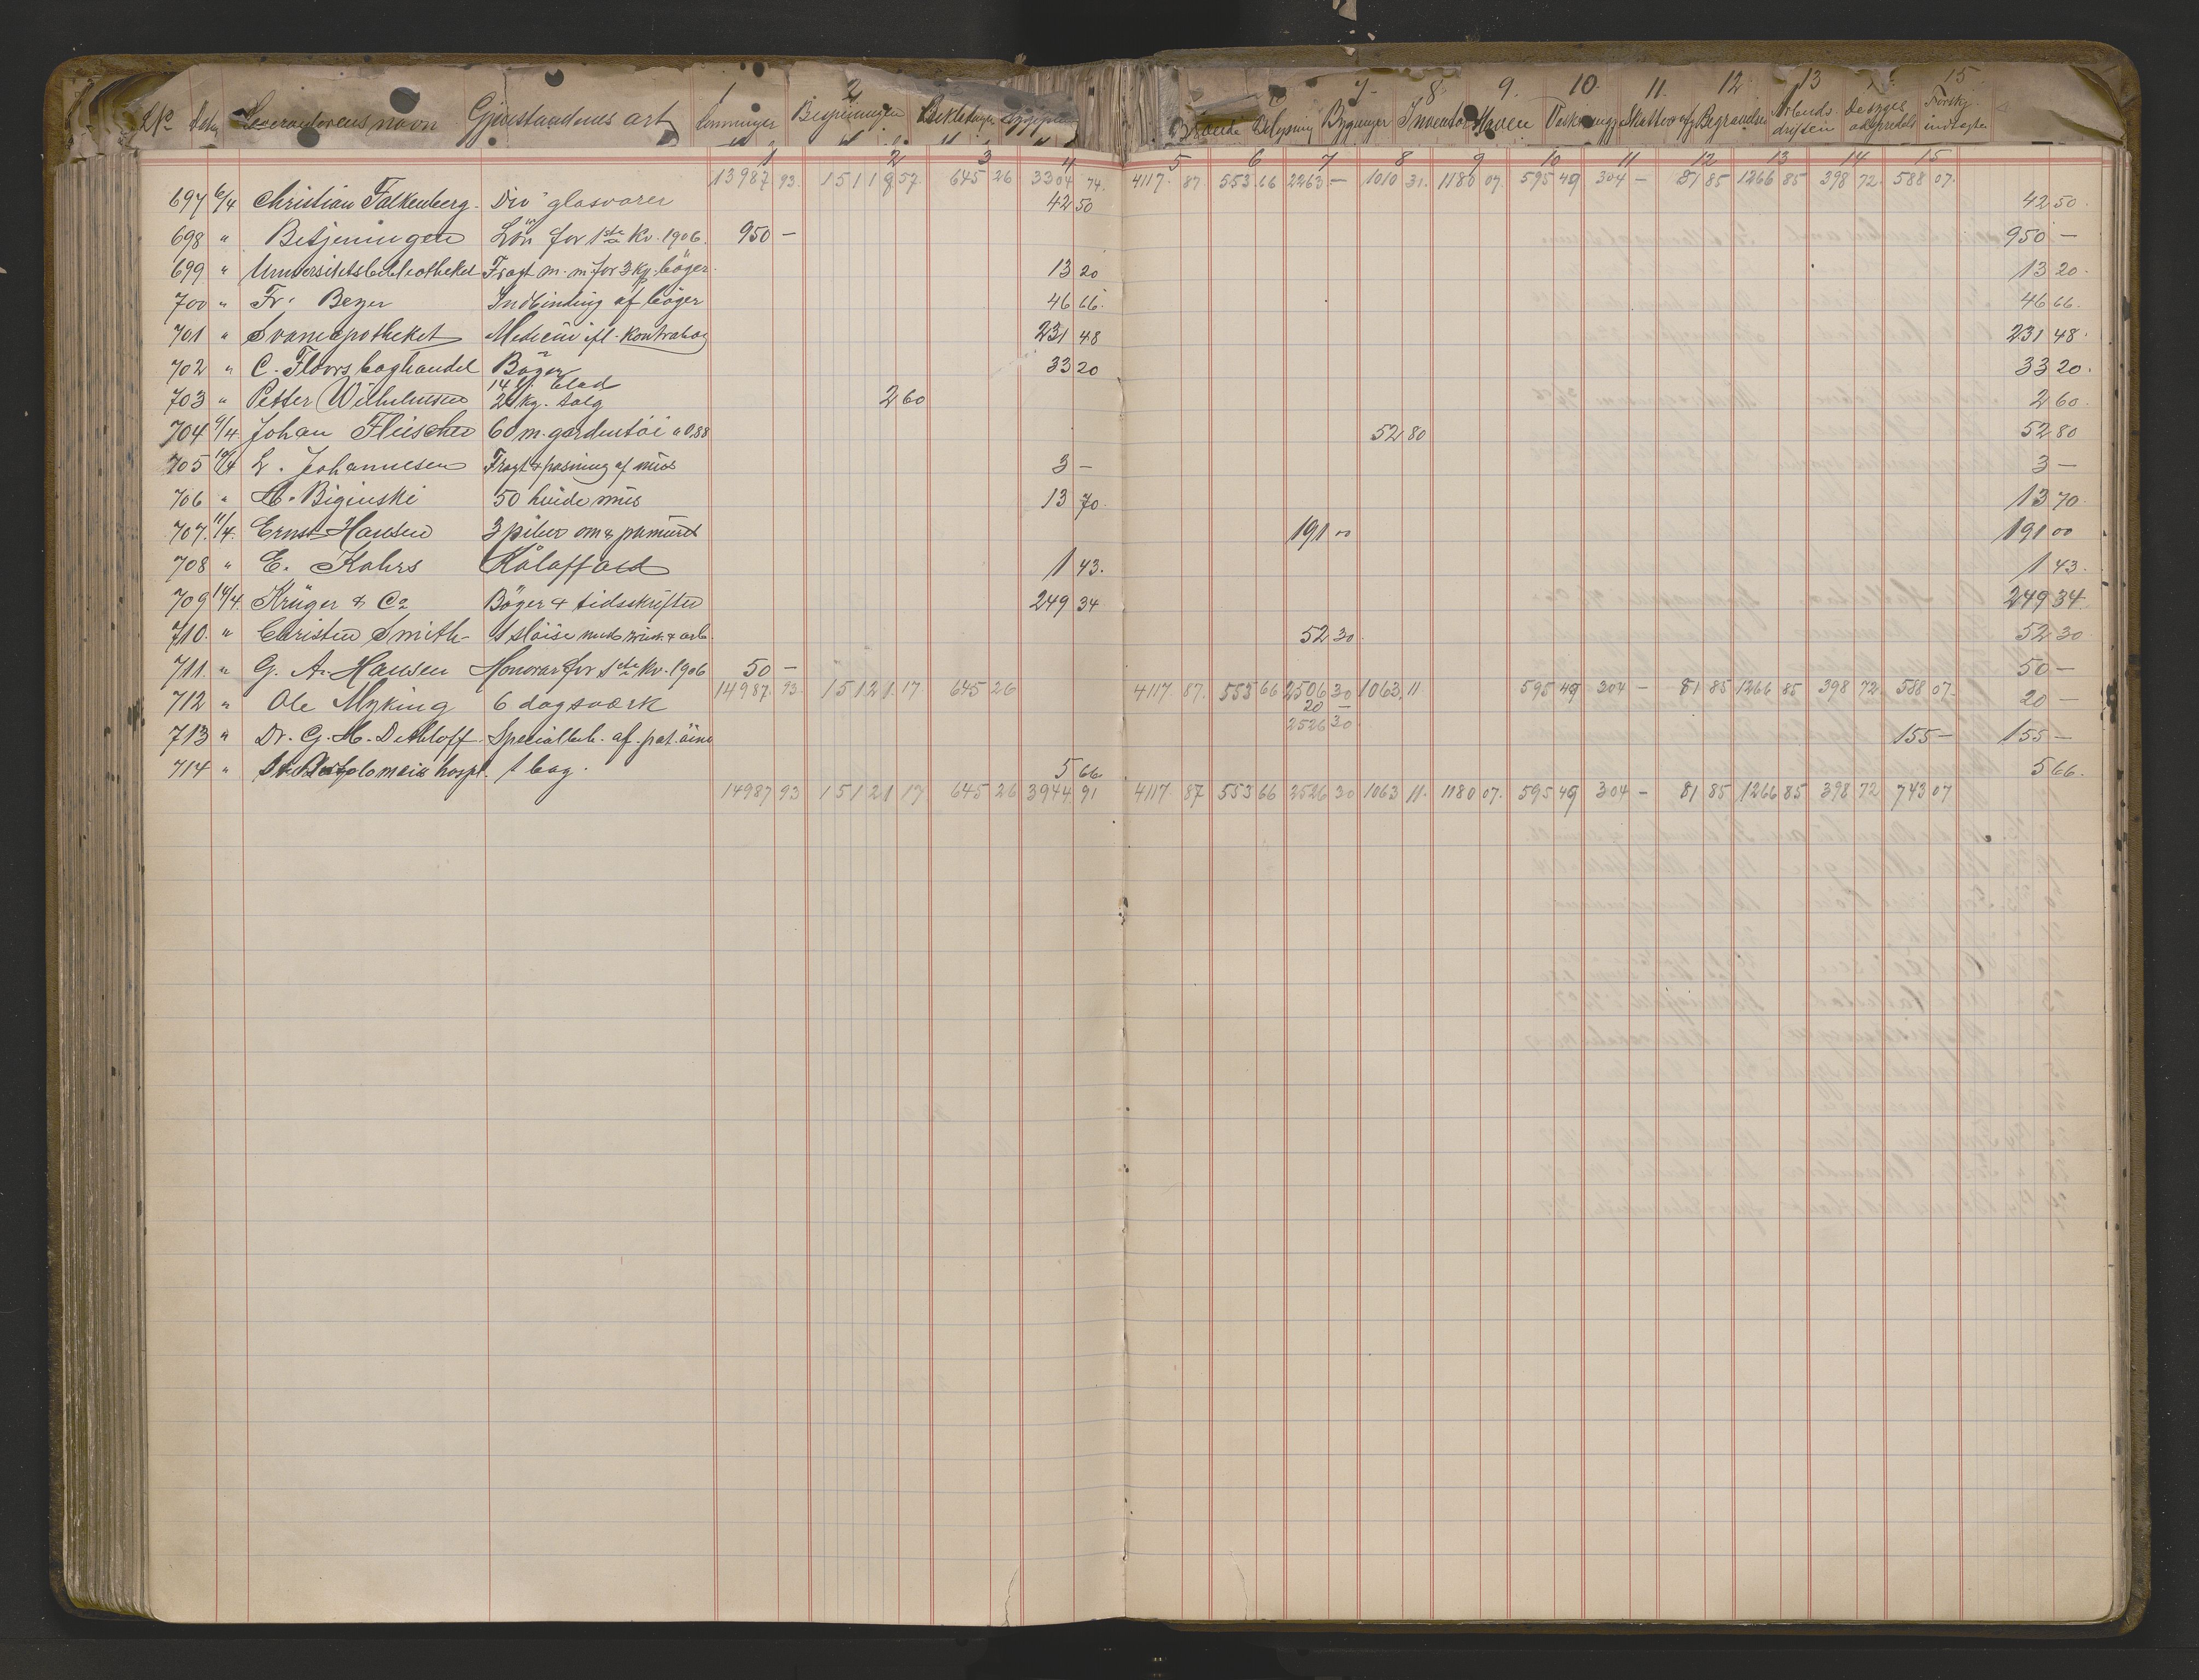 No Dato Leverandørens navn Gjenstandens art 1 Lønninger 2 Bespisningen Beklædnigen Sygeplejen Brænde Belysning 7 Bygninger 8 Inventar 9. Haven 10. Vask 11. Skatter 12 Begravelser 13 Arbeids-driften De syges adspredels 15 Forskj. indtægter
1 2 3 4 5 6 7 8 9 10 11 12 13 14 15
13987 93. 15119 57. 645 26 3304 74. 4117. 87. 553 66 2263 – 1010 31. 1180 07. 595 49 304 – 81 85 1266 85 398 72. 588 07.
697 6/4 Christian Falkenberg. Div glasvarer 42 50 42 50.
698 " Betjeningen Lön for 1ste Kv. 1906. 950 – 950 –
699 " Universitetsbibliotheket Fragt m. m. for 3 kp. böger. 13 20 13 20.
700 " Fr. Beyer Indbinding af böger 46 66. 46 66.
701 " Svaneapotheket Medicin ifl. kontrabog 231 48 231 48.
702 " C. Floors boghandel Böger 33 20 33 20.
703 " Petter Wilhelmsen 14 kg. blod 2 kg. talg 2 60 2 60.
704 9/4. Johan Fleischer 60 m. gardintöi a 0,88 52 80 52 80
705 10/4 L. Johannesen Fragt & pasning af müs 3 – 3 –
706 " A. Biginski 50 hvide müs 13 70. 13 70
707. 11/4. Ernst Hansen 3 piber om & pamüred 191 00 191 00
708 " E. Kahrs Kåloffald 1 43. 1 43.
709 14/4. Krüger & Co Böger & tidsskrifter 249 34. 249 34
710. " Christen Smith 1 slöise med zink & arb. 52 30. 52 30
711. " G. A. Hansen Honorar for 1ste Kv. 1906 50 – 50 –
14987. 93. 15121. 17. 645 26 4117. 87. 553 66 2506 30 1063, 11. 595 49 304 – 81 85 1266 85 398 72 588 07.
712 " Ole Myking 6 dagsværk 20 – 20 –
2526 30.
713 " Dr. G. H. Dethloff. Specialbeh. af pat. öine 155 – 155 –
714 " St. Bartolomeis hospl. 1 bog. 5 66 5 66.
14987 93 15121 17 645 26 3944 91 4117. 87 553 66 2526 30 1063 11. 1180 07. 595 49 304 – 81 85 1266 85 398 72 743 07